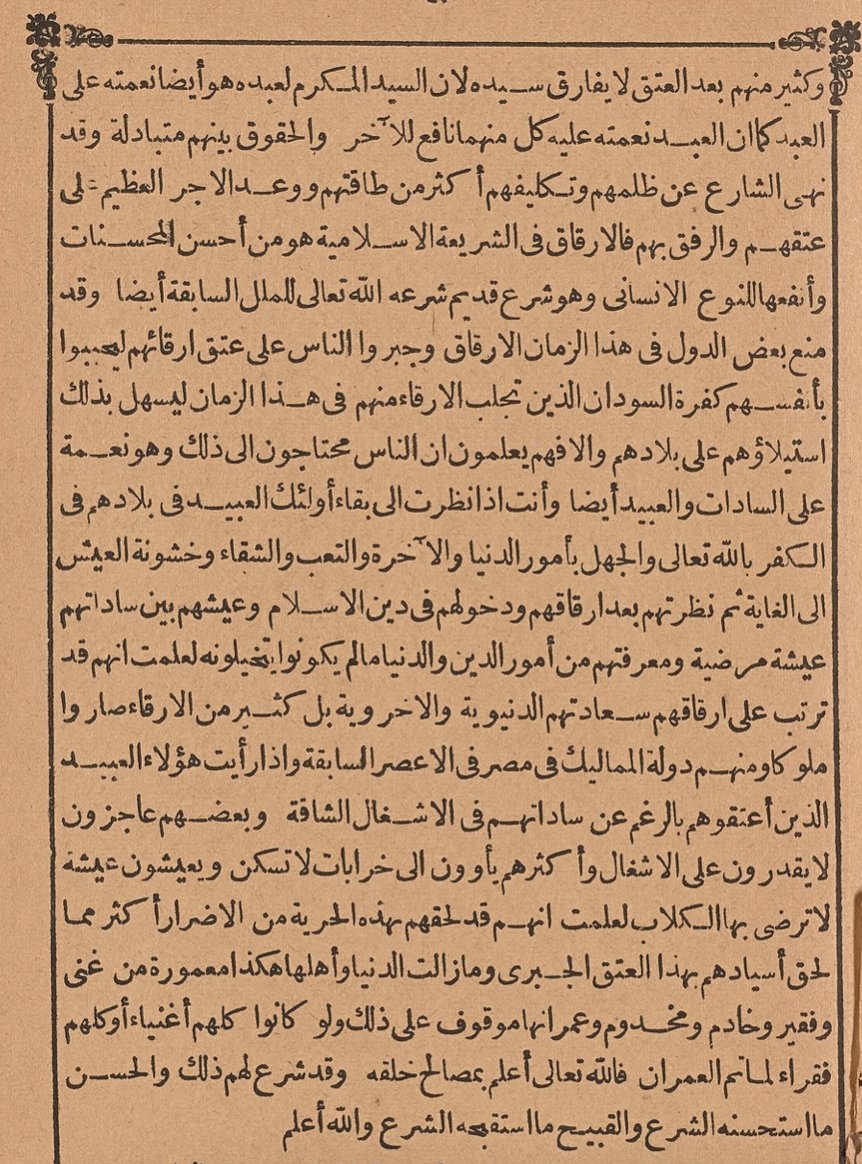 وكثير منهم بعد العتق لا يفارق سيده لان السيد المكرم لعبده هو أيضا نعمته على
العبد كما ان العبد نعمته عليه كل منهما نافع للآخر والحقوق بينهم متبادلة وقد
نهى الشارع عن ظلمهم وتكليفهم أكثر من طاقتهم ووعد الاجر العظيم على
عتقهم والرفق بهم فالارقاق فى الشريعة الاسلامية هو من أحسن المحسنات
وأنفعها للنوع الانسانى وهو شرع قديم شرعه الله تعالى للملل السابقة أيضا وقد
منع بعض الدول فى هذا الزمان الارقاق وجبروا الناس على عتق ارقائهم ليحببوا
بأنفسهم كفرة السودان الذين تجلب الارقاء منهم فى هذا الزمان ليسهل بذلك
استيلاؤهم على بلادهم والافهم يعلمون ان الناس محتاجون الى ذلك وهو نعمة
على السادات والعبيد أيضا وأنت اذا نظرت الى بقاء أولئك العبيد فى بلادهم فى
الكفر بالله تعالى والجهل بأمور الدنيا والآخرة والتعب والشقاء وخشونة العيش
الى الغاية ثم نظرتهم بعد ارقاقهم ودخولهم فى دين الاسلام وعيشهم بين ساداتهم
عيشة مرضية ومعرفتهم من أمور الدين والدنيا ما لم يكونوا يتخيلونه لعلمت انهم قد
ترتب على ارقاقهم سعادتهم الدنيوية والاخروية بل كثير من الارقاء صاروا
ملوكا ومنهم دولة المماليك فى مصر فى الاعصر السابقة واذا رأيت هؤلاء العبيد
الذين أعتقوهم بالرغم عن ساداتهم فى الاشغال الشاقة وبعضهم عاجزون
لا يقدرون على الاشغال وأكثرهم يأوون الى خرابات لا تسكن ويعيشون عيشة
لا ترضى بها الكلاب لعلمت انهم قد لحقهم بهذه الحرية من الاضرار أكثر مما
لحق أسيادهم بهذا العتق الجبرى وما زالت الدنيا وأهلها هكذا معمورة من غنى
وفقير وخادم ومخدوم وعمرانها موقوف على ذلك ولو كانوا كلهم أغنياء أو كلهم
فقراء لما تم العمران فالله تعالى أعلم بمصالح خلقه وقد شرع لهم ذلك والحسن
ما استحسنه الشرع والقبيح ما استقبحه الشرع والله أعلم